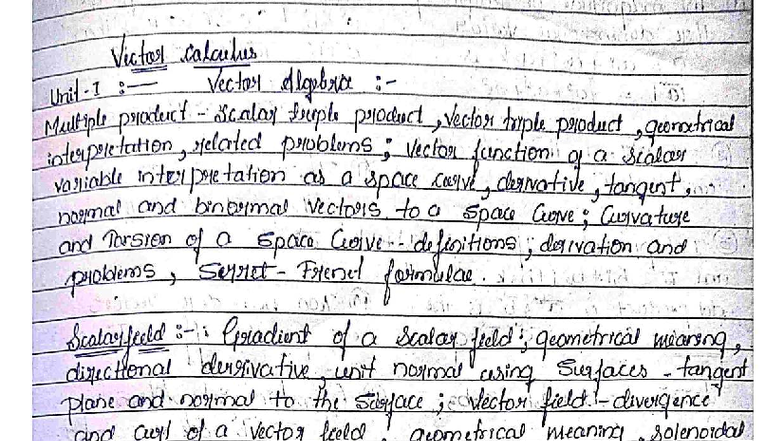 Vector Calculus
Unit-I :— Vector Algebra :-
Multiple product - Scalar triple product, Vector triple product, geometrical
interpretation, related problems; Vector function of a scalar
variable interpretation as a space curve, derivative, tangent,
normal and binormal vectors to a space Curve; Curvature
and Torsion of a Space Curve - definitions; derivation and
problems, Serret-Frenet formulae.
Scalar field :-: Gradient of a scalar field; geometrical meaning,
directional derivative, unit normal using Surfaces - tangent
plane and normal to the Surface; Vector field - divergence
and curl of a vector field, geometrical meaning, solenoidal